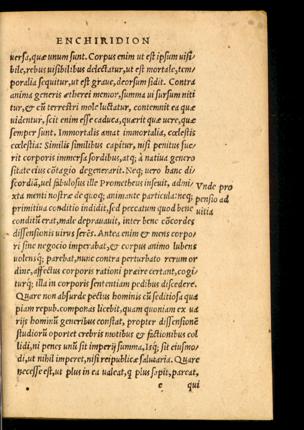 ENCHIRIDION
uersa, quæ unum sunt. Corpus enim ut est ipsum uisi-
bile, rebus uisibilibus delectatur, ut est mortale, tem-
poralia sequitur, ut est graue, deorsum sidit. Contra
anima generis ætherei memor, summa ui sursum niti
tur, & cũ terrestri mole luctatur, contemnit ea quæ
uidentur, scit enim esse caduca, quærit quæ uere, quæ
semper sunt. Immortalis amat immortalia, cœlestis
cœlestia: Similis similibus capitur, nisi penitus fue-
rit corporis immersa sordibus, atq; à natiua genero
sitate eius cõtagio degenerarit. Neq; uero hanc di-
scordiã, uel fabulosus ille Prometheus inseuit, admi
xta menti nostræ de quoq; animante particula: neq;
primitiua conditio indidit, sed peccatum quod bene
conditũ erat, male deprauauit, inter bene cõcordes
dissensionis uirus serẽs. Antea enim & mens corpo
ri sine negocio imperabat, & corpus animo lubens
uolensq; parebat, nunc contra perturbato rerum or
dine, affectus corporis rationi præire certant, cogi-
turq; illa in corporis sententiam pedibus discedere.
Quare non absurde pectus hominis cũ seditiosa qua
piam repub. componas licebit, quam quoniam ex ua
rijs hominũ generibus constat, propter dissensionẽ
studiorũ oportet crebris motibus & factionibus col
lidi, ni penes unũ sit imperij summa, Isq; sit eiusmo-
di, ut nihil imperet, nisi reipublicæ salutaria. Quare
necesse est, ut plus in ea ualeat, q̃ plus sapit, pareat,
e qui
Vnde pro
pensio ad
uitia